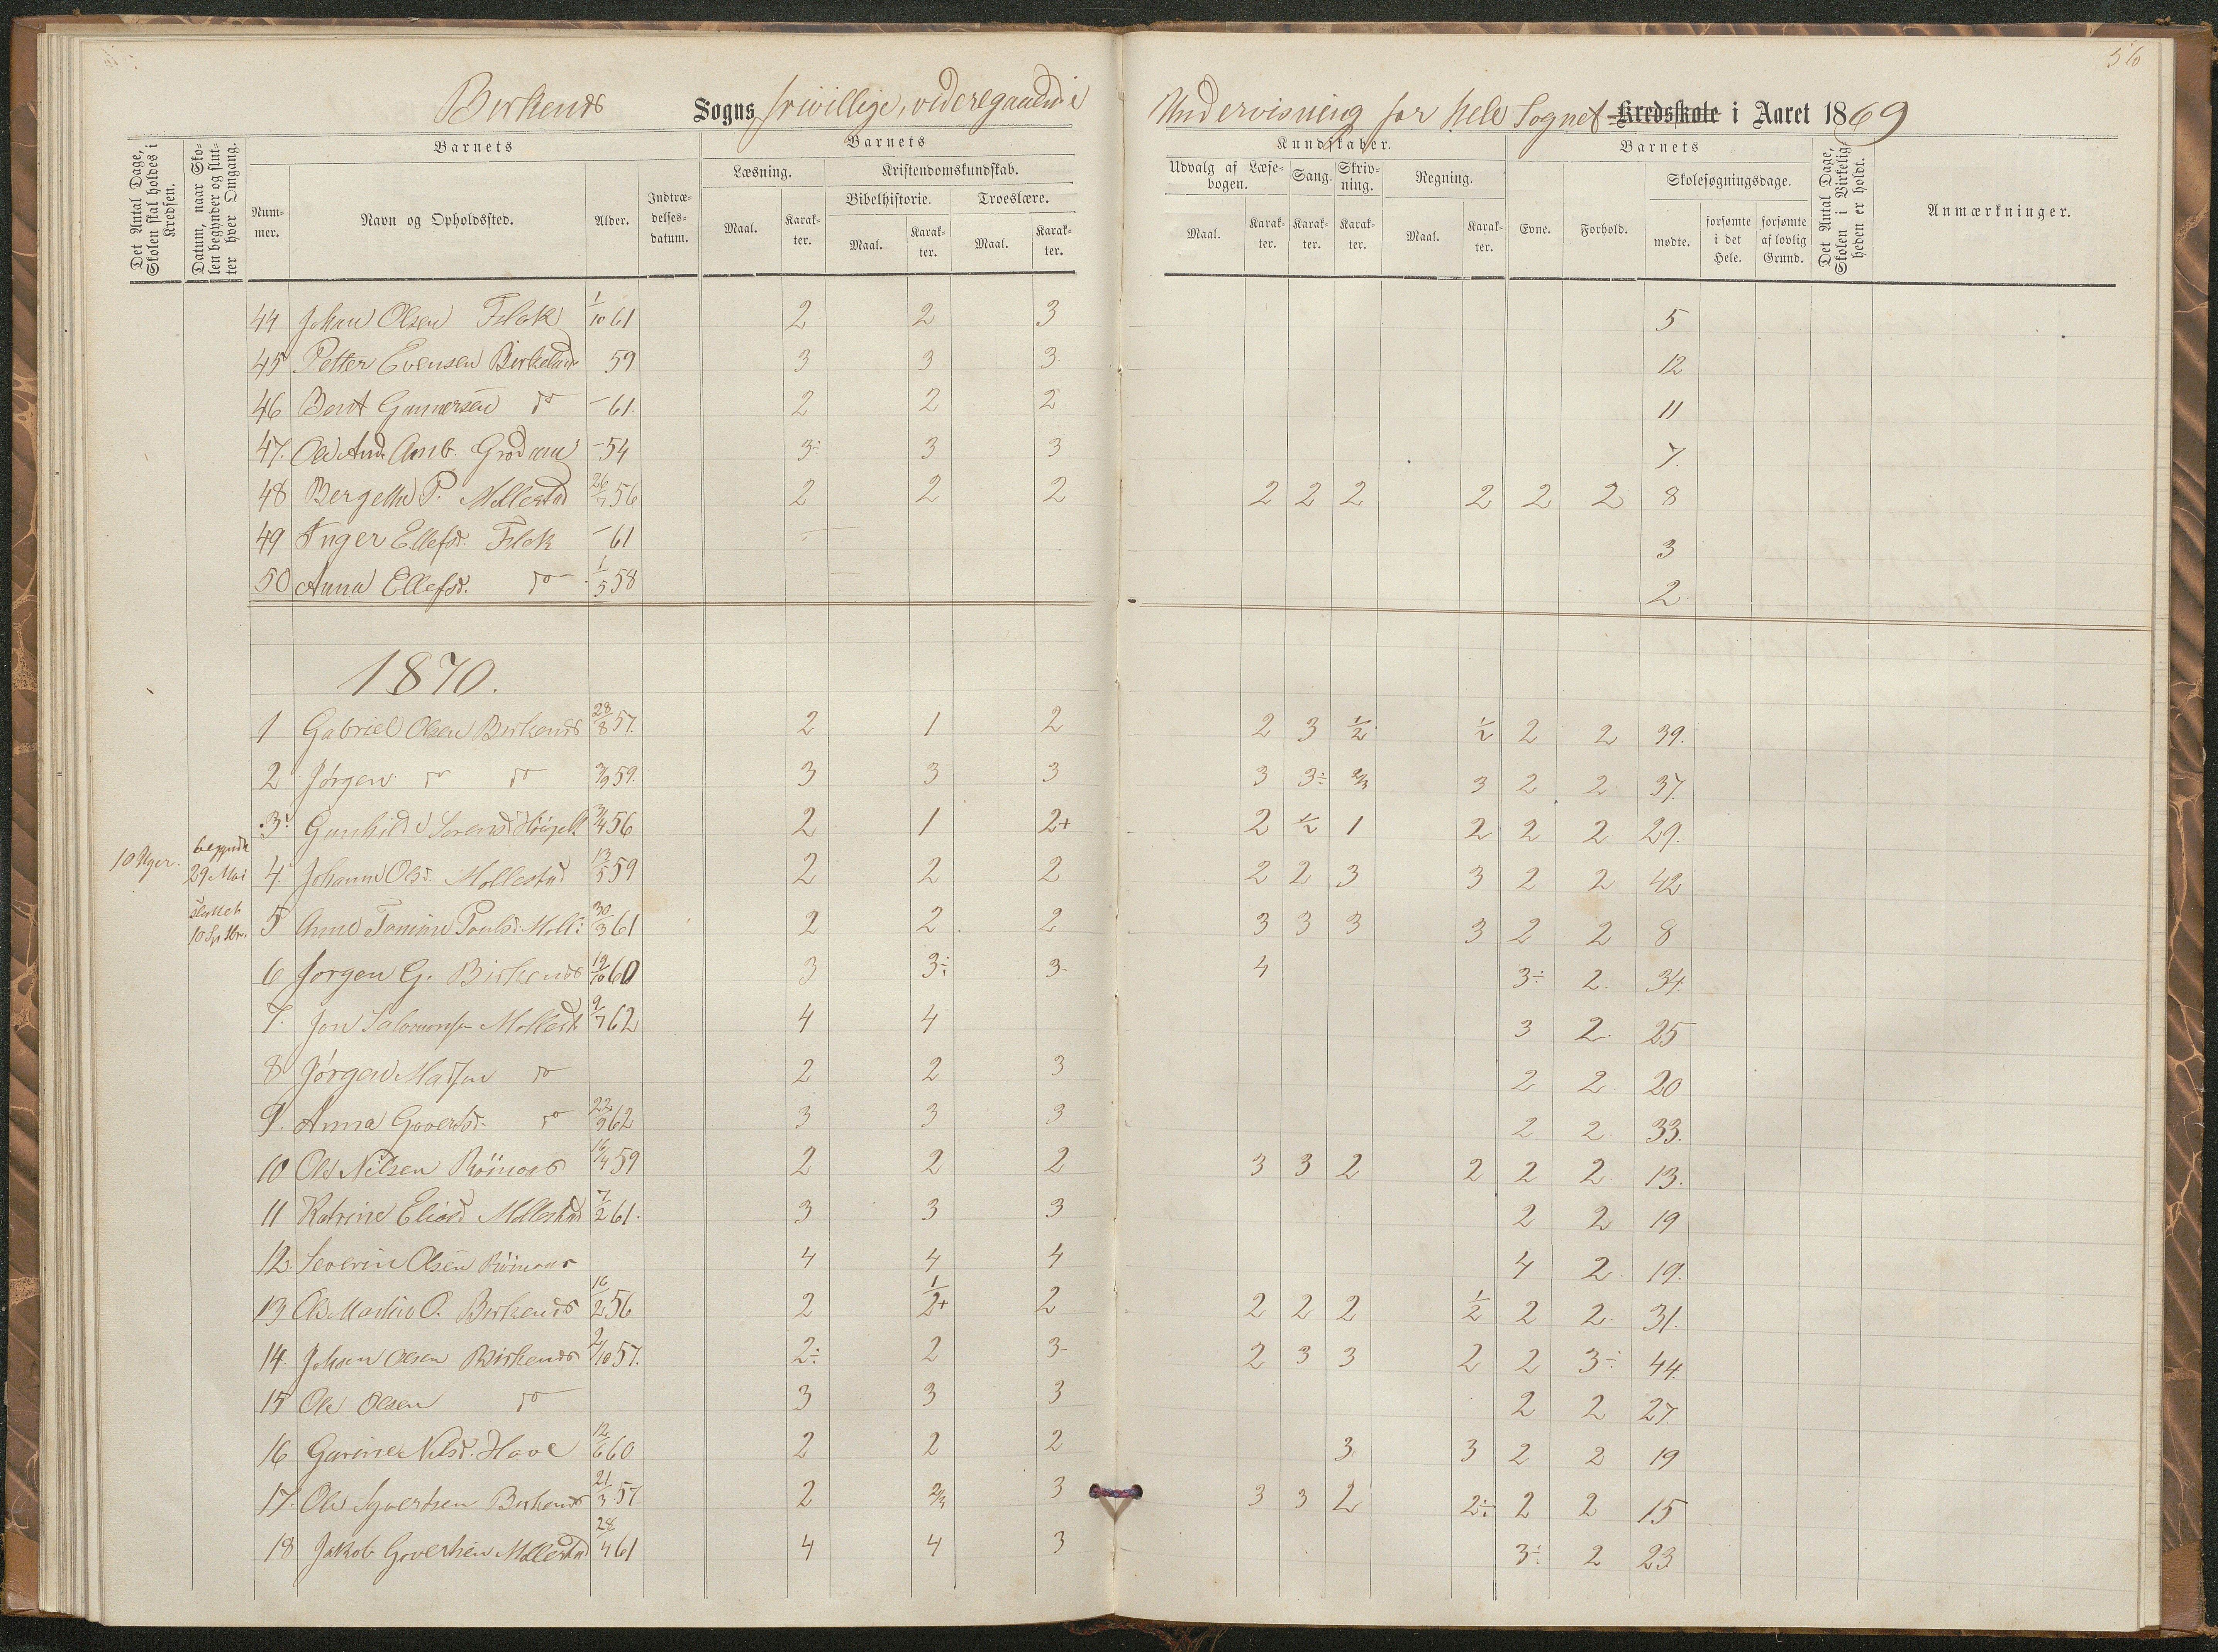 56
Birkenes Sogns frivillige, videregaaende Undervisning for hele Sognet Kredsskole i Aaret 1869
Det Antal Dage, Skolen skal holdes i Kredsen.
Datum, naar Skolen begynder og slutter hver Omgang.
Barnets
Barnets
Kundskaber.
Barnets
Det Antal Dage, Skolen i Virkeligheden er holdt.
Nummer.
Navn og Opholdssted.
Alder.
Indtrædelsesdatum.
Læsning.
Kristendomskundskab.
Udvalg af Læsebogen.
Sang.
Skrivning.
Regning.
Evne.
Forhold.
Skolesøgningsdage.
Anmærkninger.
Bibelhistorie.
Troeslære.
Maal. Karakter. Maal. Karakter. Maal. Karakter. Maal. Karakter. Karakter. Karakter. Maal. Karakter.
mødte. forsømte i det Hele. forsømte af lovlig Grund.
44 Johan Olsen Flak 1/10 61 2 2 3 5
45 Petter Evensen Birkeland 59 3 3 3 12
46 Berit Gunnersen do – 61. 2 2 2 11
47. Ole And. – 54 3÷ 3 3 7.
48 P. Mollestad 26/7 56 2 2 2 2 2 2 2 2 2 8
49 Inger Ellefsd. Flak – 61 – — 3
50 Anna Ellefsd. do 1/5 58 — 2
1870.
1 Gabriel Olsen Birkenes 28/8 57. 2 1 2 2 3 1/2 1/2 2 2 39.
2 Jørgen do do 3/9 59. 3 3 3 3 3÷ 2/3 3 2 2 37.
3 Gunhild 3/4 56 2 1 2+ 2 1/2 1 2 2 2 29.
10 Uger. begyndte 29 Mai
4. Olsd. Mollestad 13/5 59 2 2 2 2 2 3 3 2 2 42
sluttet 10 Sptbr.
5 Anne Tomine Paulsd. Moll: 30/3 61 2 2 2 3 3 3 3 2 2 8
6 Jørgen G. Birkenes 19/10 60 3 3÷ 3 4 3÷ 2. 34.
7. Jon Salomonsen Mollest 9/7 62 4 4 3 2. 25
8 Jørgen Madsen do 2 2 3 2 2 20
9. Anna do 22/9 62 3 3 3 2 2. 33.
10 Ole Nilsen 16/4 59 2 2 2 3 3 2 2 2 2. 13.
11 Katrine Eliasd Mollestad 7/2 61. 3 3 3 2 2 19
12. Severin Olsen 4 4 4 4 2. 19.
13 Ole Martin O. Birkenes 16/2 56 2 1/2+ 2 2 2 2 1/2 2 2. 31.
14. Johan Olsen Birkenes 2/10 57. 2÷ 2 3- 2 3 3 2 2 3÷ 44.
15 Ole Olsen do 3 3 3 2 2 27.
16 Gurine Nilsd. Have 12/6 60 2 2 2 3 3 2 2 19
17. Ole Syvertsen Birkenes 21/3 57. 2 2/3 3 3 3 2 2÷ 2 2 15
18 Jakob Govertsen Mollestad 28/4 61 4 4 3 3÷ 2 23